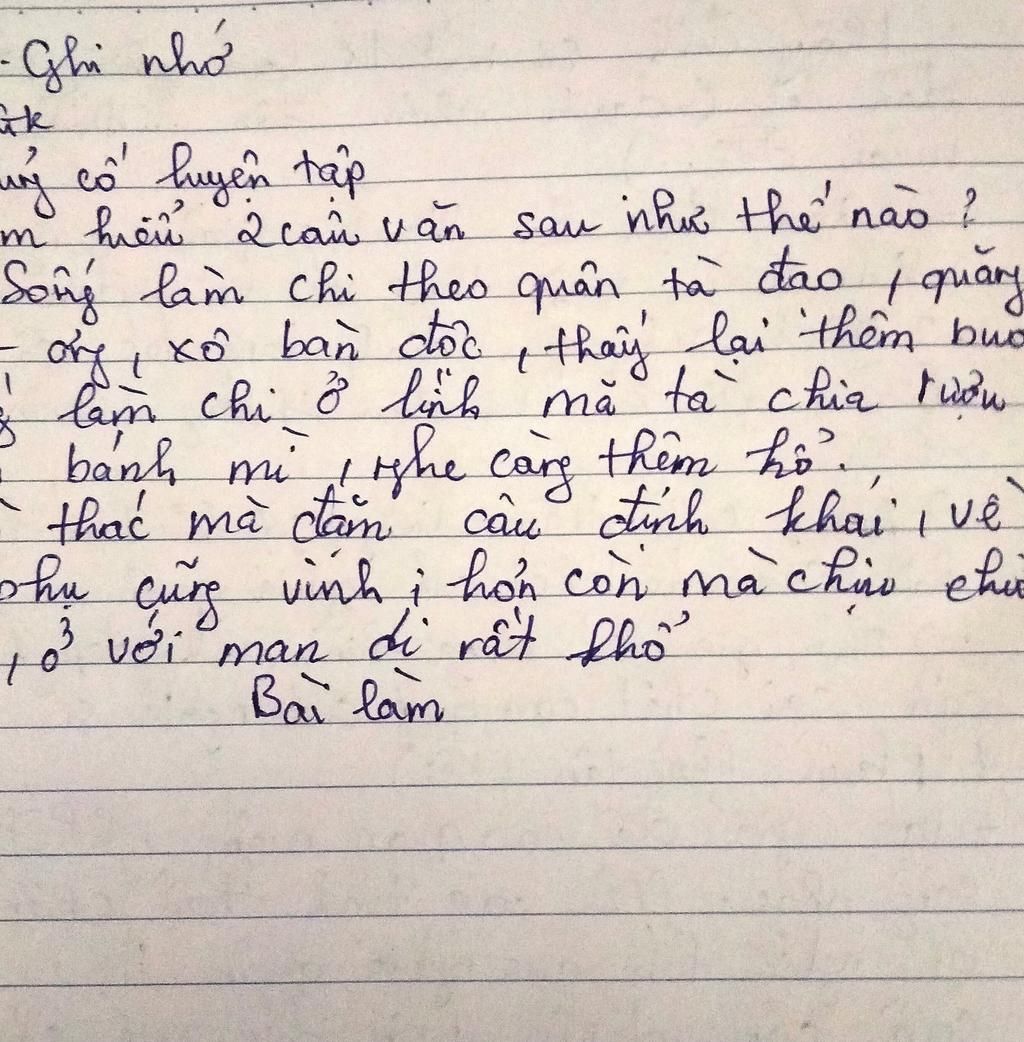 - Ghi nhớ
Gtk
củng cố luyện tập
em hiểu 2 câu văn sau như thế nào?
Sống làm chi theo quân tà đạo, quăng
- ơng, xô bàn độc, thấy lại thêm buồ
làm chi ở lính mã tà chia rượu
bánh mì, nghe càng thêm hổ.
thác mà đặng câu định khái, về
phụ cũng vinh; hơn còn mà chịu chữ
, ở với man di rất khổ
Bài làm